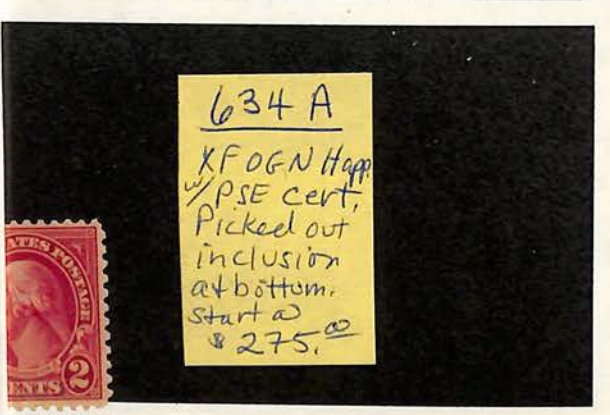 634 A
XF OG N H app.
w/ PSE cert.
Picked out
inclusion
at bottom.
Start @
$275.00
TES POSTAGE
ENTS 2